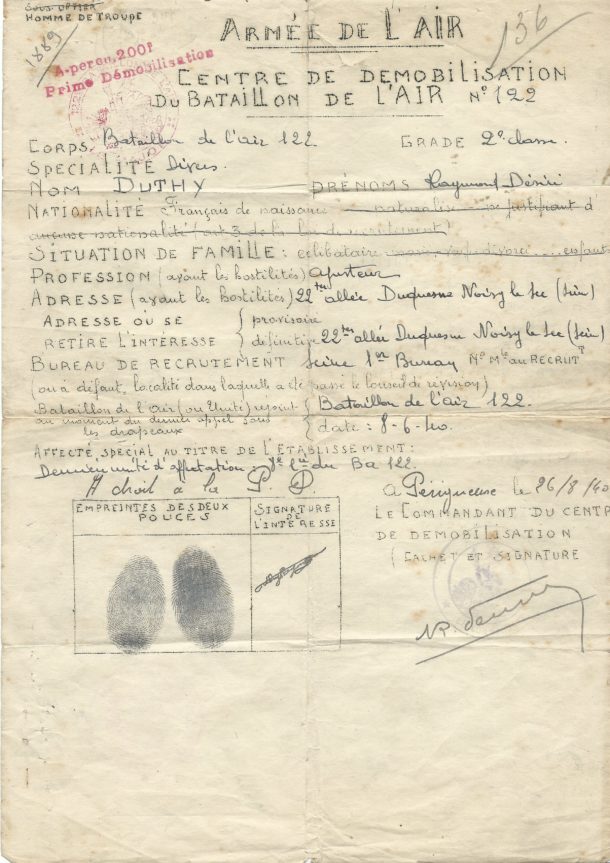 SOUS-OFFICIER
HOMME DE TROUPE
1889
136
ARMÉE DE L'AIR
A-perçu.200f
Prime Démobilisation
CENTRE DE DEMOBILISATION
DU BATAILLON DE L'AIR N° 122
CORPS Bataillon de l'air 122 GRADE 2e classe.
SPECIALITÉ Divers
NOM DUTHY PRÉNOMS Raymond Désiré
NATIONALITÉ Français de naissance naturalisé ne justifiant d'
aucune nationalité (art 3 de la loi de recrutement)
SITUATION DE FAMILLE: célibataire marié, veuf, divorcé .... enfants
PROFESSION (avant les hostilités) ajusteur
ADRESSE (avant les hostilités) 22ter allée Duquesne Noisy le Sec (Seine)
ADRESSE OU SE { provisoire
RETIRE L'INTERESSE { definitive 22ter allée Duquesne Noisy le Sec (Seine)
BUREAU DE RECRUTEMENT Seine 1er Bureau N° Mle au RECRUTt
(ou à défaut, localité dans laquelle a été passé le conseil de révision)
Bataillon de l'air (ou Unité) rejoint { Bataillon de l'air 122.
au moment du dernier appel sous { date : 8-6-40.
les drapeaux
AFFECTÉ SPECIAL AU TITRE DE L'ETABLISSEMENT:
Dernière unité d'affectation : Cie du Ba 122.
A droit à la P. D. a Perigueux le 26/8/40
EMPREINTES DES DEUX
POUCES
SIGNATURE
DE
L'INTERESSE
LE COMMANDANT DU CENTR
DE DEMOBILISATION
(CACHET ET SIGNATURE